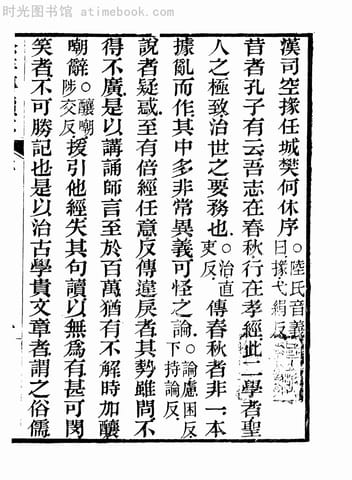 时光图书馆 - atimebook.com
漢司空掾任城樊何休序○陸氏音義曰掾弋絹反
昔者孔子有云吾志在春秋行在孝經此二學者聖
人之極致治世之要務也○治直吏反傳春秋者非一本
據亂而作其中多非常異義可怪之論○論盧困反下持論反
說者疑惑至有倍經任意反傳違戾者其勢雖問不
得不廣是以講誦師言至於百萬猶有不解時加釀
嘲辭○釀嘲陟交反援引他經失其句讀以無爲有甚可閔
笑者不可勝記也是以治古學貴文章者謂之俗儒